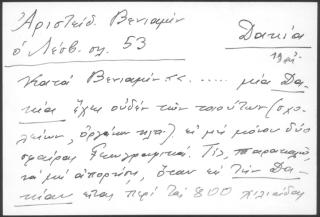 Ἀριστείδ. Βενιαμίν
ὁ Λέσβ. σελ. 53
Δακία
19
Κατὰ Βενιαμίν κ.κ. ..... μία Δα-
κία ἔχει οὐδὲν τῶν τοιούτων (σχο-
λείων, ὀργάνων κτλ.) εἰ μὴ μόνον δύο
σφαίρας Γεωγραφικάς. Τίς, παρακαλῶ,
νὰ μὴ ἀπορήσῃ, ὅταν εἰς τὴν Δα-
κίαν περὶ τὰς 800 χιλιάδας